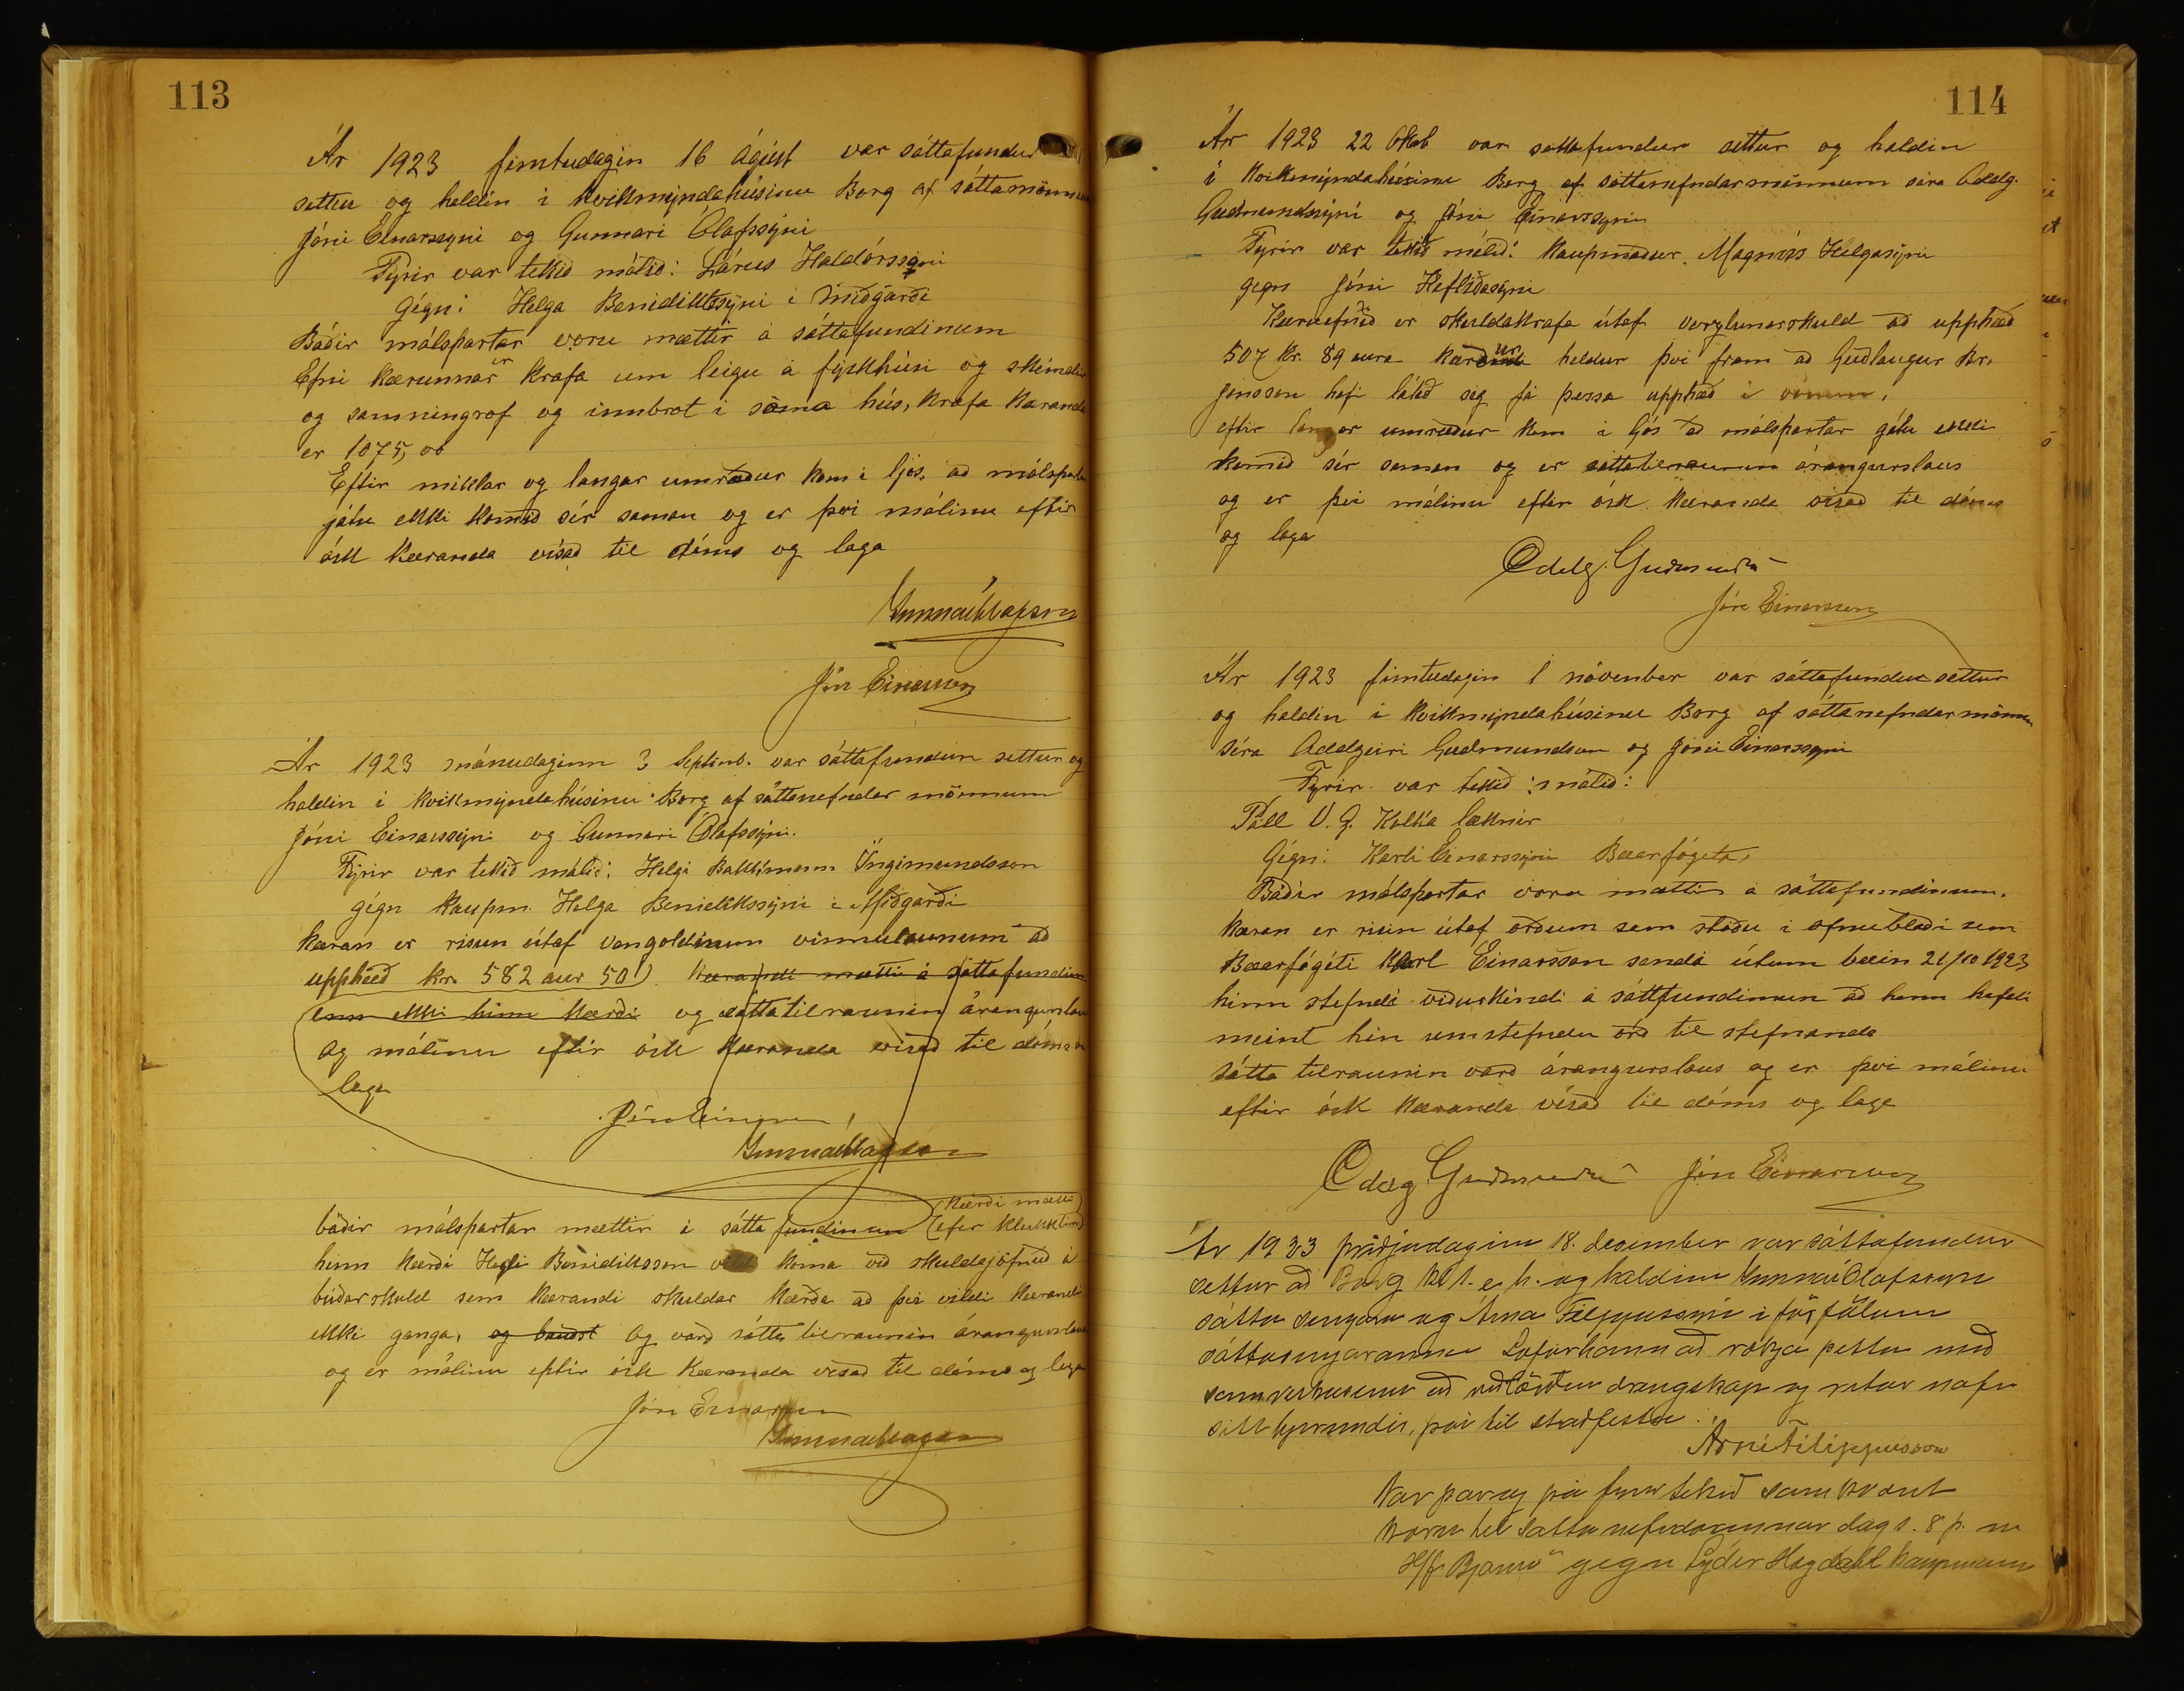 113
Ár 1923 fimtudagin 16 Ágúst var sáttafundur
settur og haldin í Kvikmyndahúsinu Borg af sáttamönnum
Jóni Einarssyni og Gunnari Ólafssyni
Fyrir var tekið málið: Lárus Haldórssyni
gégn: Helga Benidiktssyni í Miðgarði
Báðir málspartar voru mættir á sáttafundinum
Efni kærunnar er krafa um leigu á fiskhúsi og skémdir
og samningrof og innbrot í sama hús, krafa Kæranda
er 1075,00
Eftir miklar og langar umræður kom í ljós, að málspartar
gátu ekki komið sér saman og er því málinu eftir
ósk kæranda vísað til dóms og laga
Gunnar Ólafsson
Jón Einarsson
Ár 1923 mánudaginn 3 Septmb. var sáttafundur settur og
haldin í Kvikmyndahúsinu Borg af sáttanefndar mönnum
Jóni Einarssyni og Gunnari Ólafssyni.
Fyrir var tekið málið: Helgi Ingimundsson
gégn kaupm. Helga Benidiktssyni í Miðgarði
kæran er risun útaf vangoldinum vinnulaunum að
upphæð kr. 582 aur 50) Kærandi mætti á sáttafundin
enn ekki hinn kærði og sáttatilraunin árangurslaus
og málinu eftir ósk kæranda vísað til dóms og
laga
Jón Einarsson
Gunnar Ólafsson
(Kærði mætti)
báðir málspartar mættir á sátta fundinum (efer klukktíma)
hinn kærði Helgi Bénidiktsson koma við skuldajöfnuð á
búðarskuld sem kærandi skuldar kærða að því vildi kærandi
ekki ganga, og bauðst og varð sátta tilraunin árangurslaus
og er málinu eptir ósk kæranda vísað til dóms og laga
Jón Einarsson
Gunnar Ólafsson
114
Ár 1923 22 Oktb var sáttafundur settur og haldin
í Kvikmyndahúsinu Borg af sáttanefndarmönnum séra Oddg.
Guðmundssyni og Jóni Einarssyni
Fyrir var tekið málið: Kaupmaður Magnús Helgasyni
gegn Jóni Hafliðasyni
Kæruefnið er skuldakrafa útaf verzlunarskuld að upphæð
507 kr. 89 aura kærður heldur því fram að Guðlaugur Br.
Jónsson hafi látið sig fá þessa upphæð í vörum,
eftir langar umræður kom í ljós að málspartar gátu ekki
komið sér saman og er sáttatilraunin árangurslaus
og er því málinu eftir ósk kæranda vísað til dóms
og laga
Oddg. Guðmunds
Jón Einarsson
Ár 1923 fimtudagin 1 nóvenber var sáttafundur settur
og haldin í kvikmyndahúsinu Borg af sáttanefndarmönnum
séra Oddgeiri Guðmundson og Jóni Einarssyni
Fyrir var tekið: málið:
Páll V. G. Kolka læknir
Gégn: Karli Einarssyni Bæarfógeta,
Báðir málspartar voru mættir á sáttafundinum.
Kæran er risin útaf orðum sem stóðu í ofnublaði sem
Bæarfógéti Karl Einarsson sendi útum bæin 21/10 1923
hinn stefndi viðurkéndi á sáttfundinum að hann hefdi
meint hin umstefndu orð til stefnanda
Sátta tilraunin varð árangurslaus og er því málinu
eftir ósk kæranda vísað til dóms og laga
Oddg Guðmunds Jón Einarsson
Ár 1923 þriðjudaginn 18. desember var sáttafundur
settur að Borg kl 1. e. h. og haldinn Gunnar Ólafssyni
sátta semjara og Árna Filippussyni í forföllum
sáttasemjarans Lofar hann að rækja þetta með
samviskusemi að viðlögðum drengskap og ritar nafn
sitt hjerundir, því til staðfestu.
Árni Filippusson
Var þar og þá fyrir tekið samkvæmt
kæru til sátta nefndarinnar dags. 8 þ. m
H/f „Bjarmi“ gegn Lyder Höydahl kaupmanni